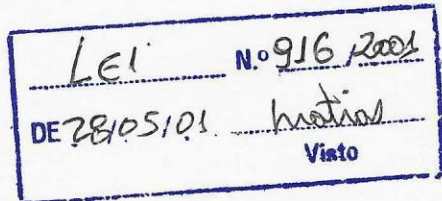 LEI N.º 916/2001
DE 28/05/01 Matias
Visto